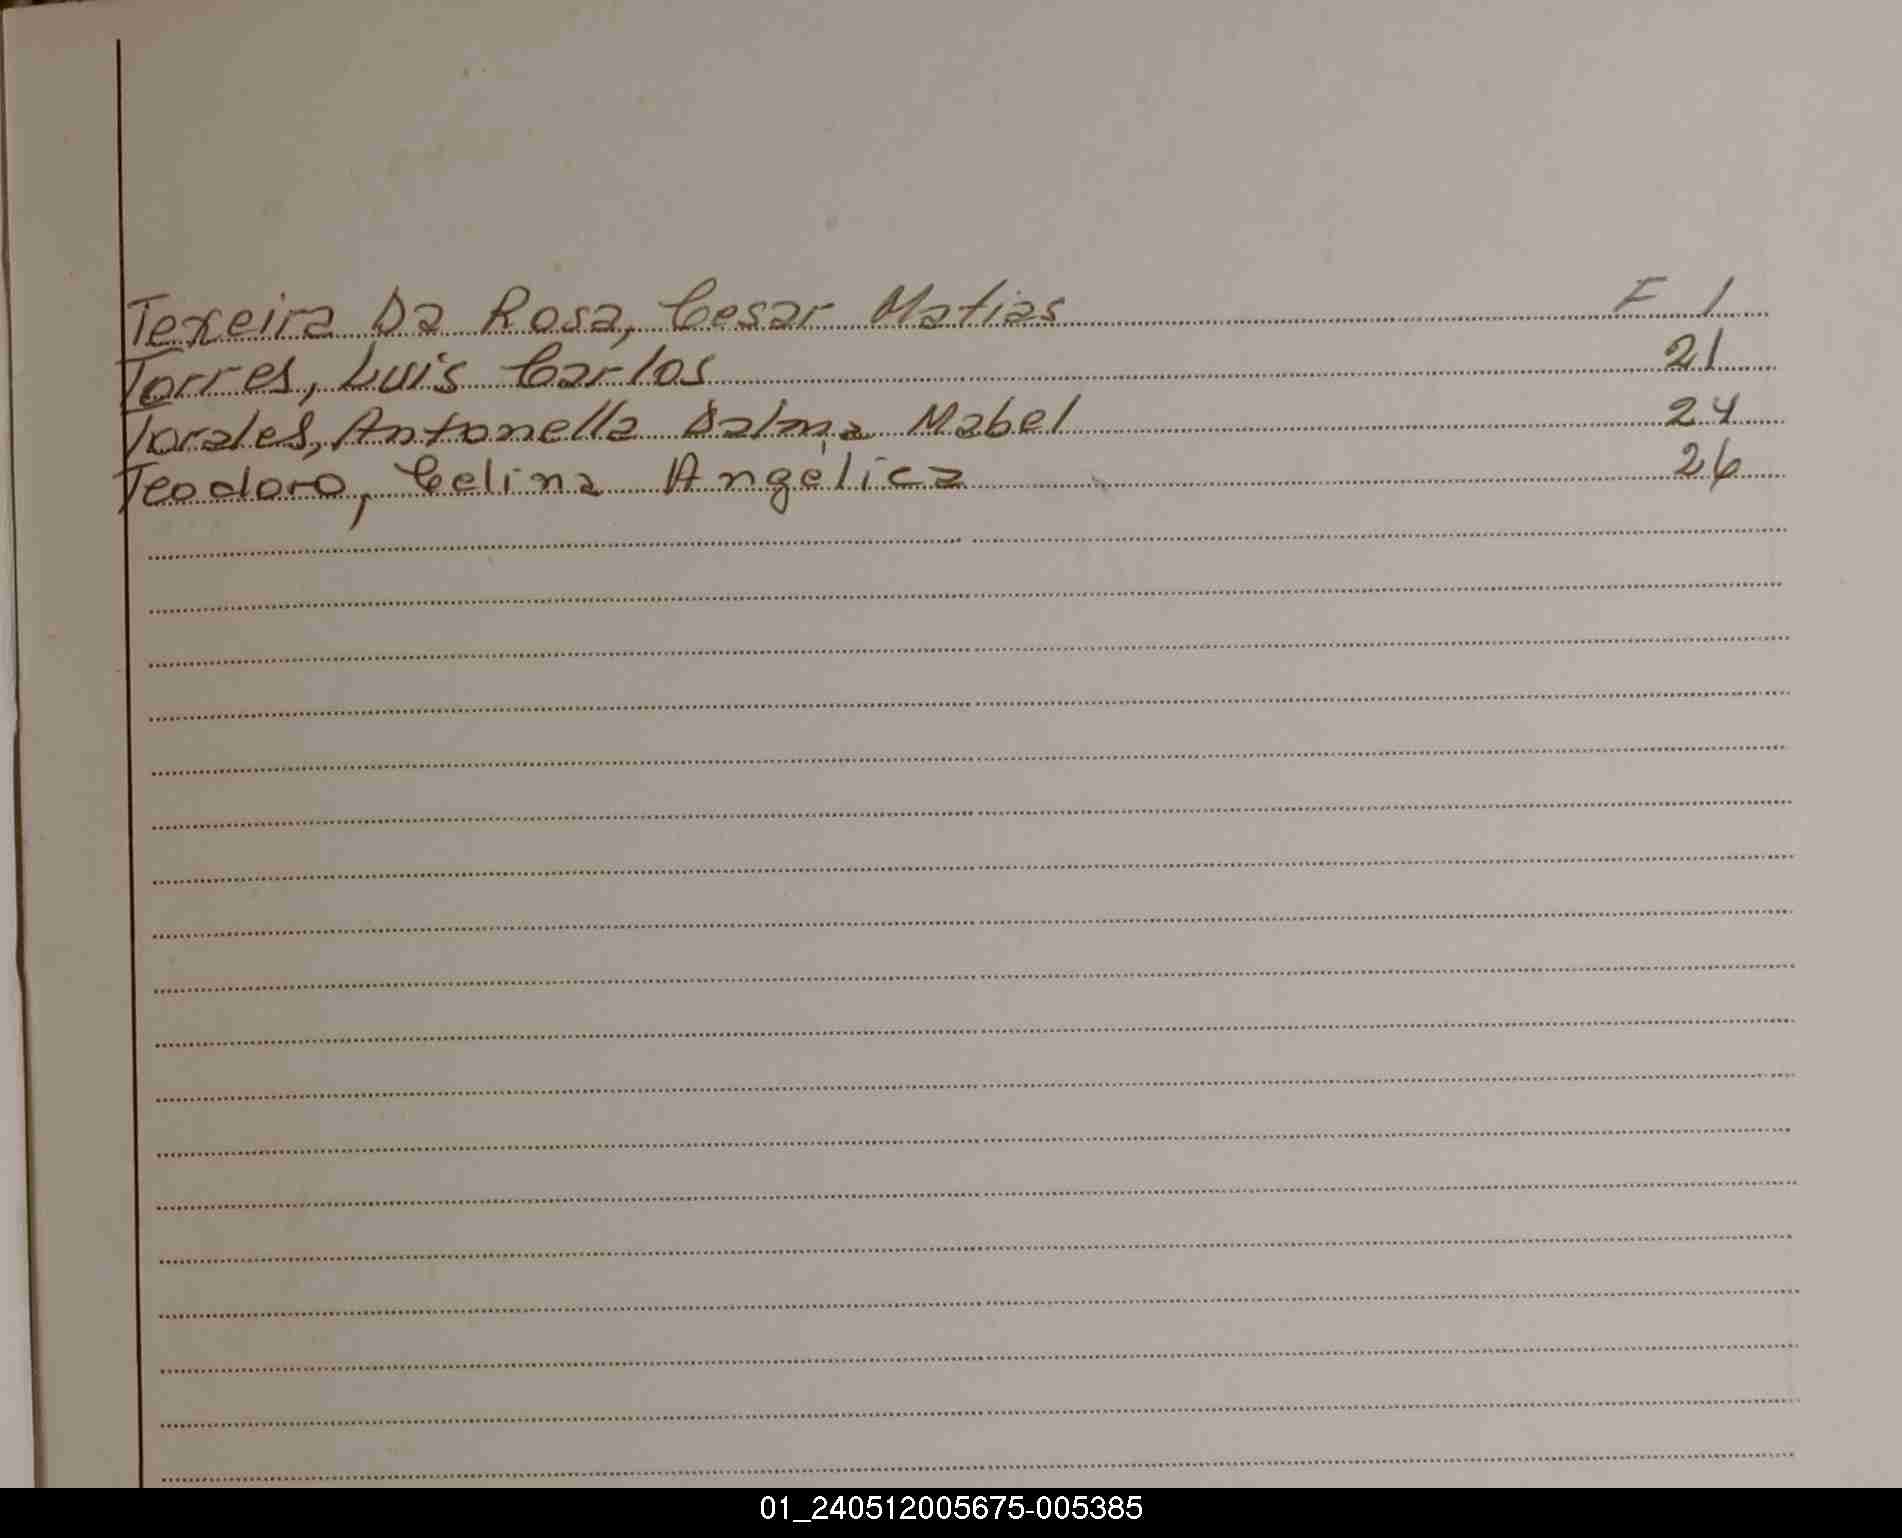 Texeira Da Rosa, Cesar Matias F 1
Torres, Luis Carlos 21
Torales, Antonella Dalma Mabel 24
Teodoro, Celina Angélica 26
01_240512005675-005385